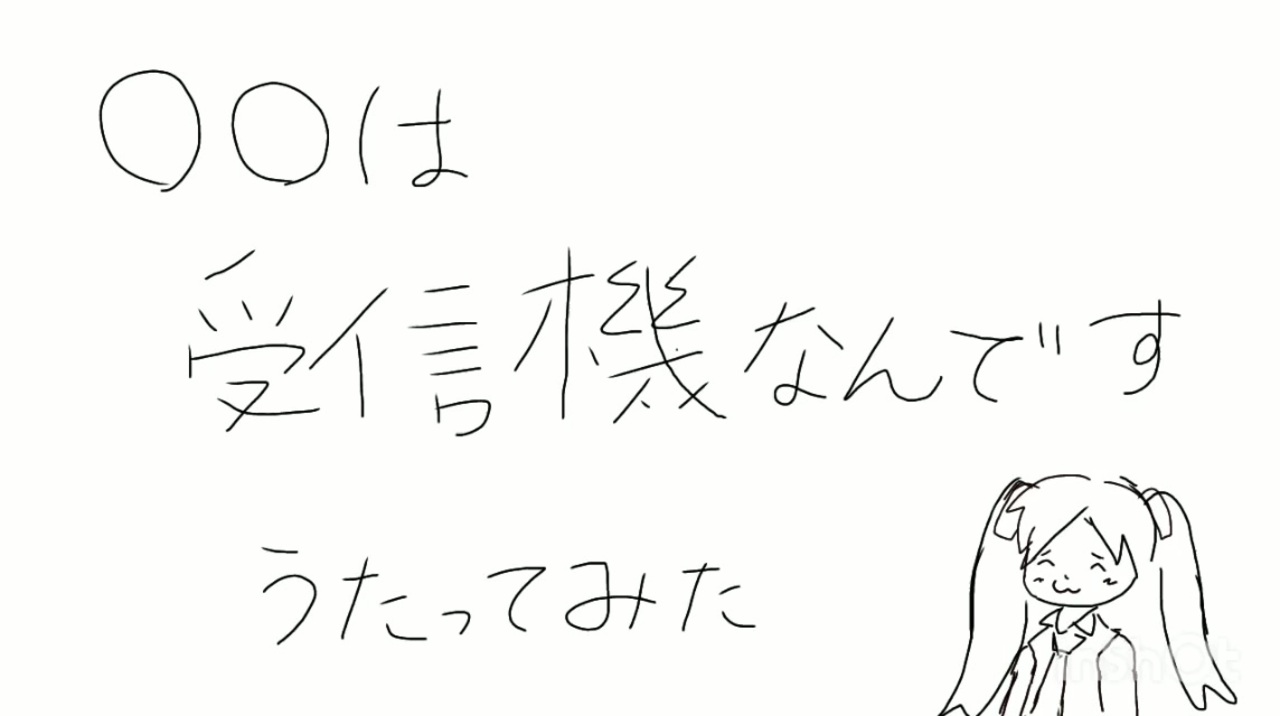 〇〇は
受信機なんです
うたってみた
InShOt